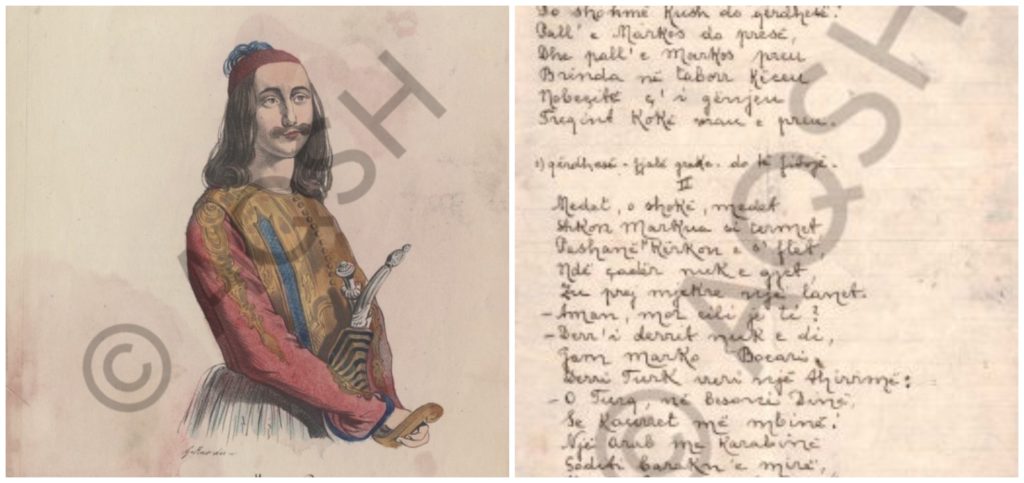 Do shohmë Kush do gërdhesë!
Pall' e Markos do presë,
Dhe pall' e Markos preu
Brënda në taborr Këceu
Nobeçitë ç' i gënjeu
Tregint Kokë vrau e preu.
1) gërdhesë - fjalë greke - do të fitojë -
II
Medet, o shokë, medet
Shkon Markua si termet
Pashanë Kërkon e s' flet,
Ndë çadër nuk e gjet,
Zu prej mjekre një lanet.
- Aman, mor cili je ti?
- Derr' i derrit nuk e di,
Jam Marko Boçari.
Derri Turk vuri një thirrmë:
- O Turq, në besoni Dinë,
Se Kaurret më mbinë!
Një Arab me Karabinë
Goditi Barakn' e mirë,
© AQSH
© AQSH